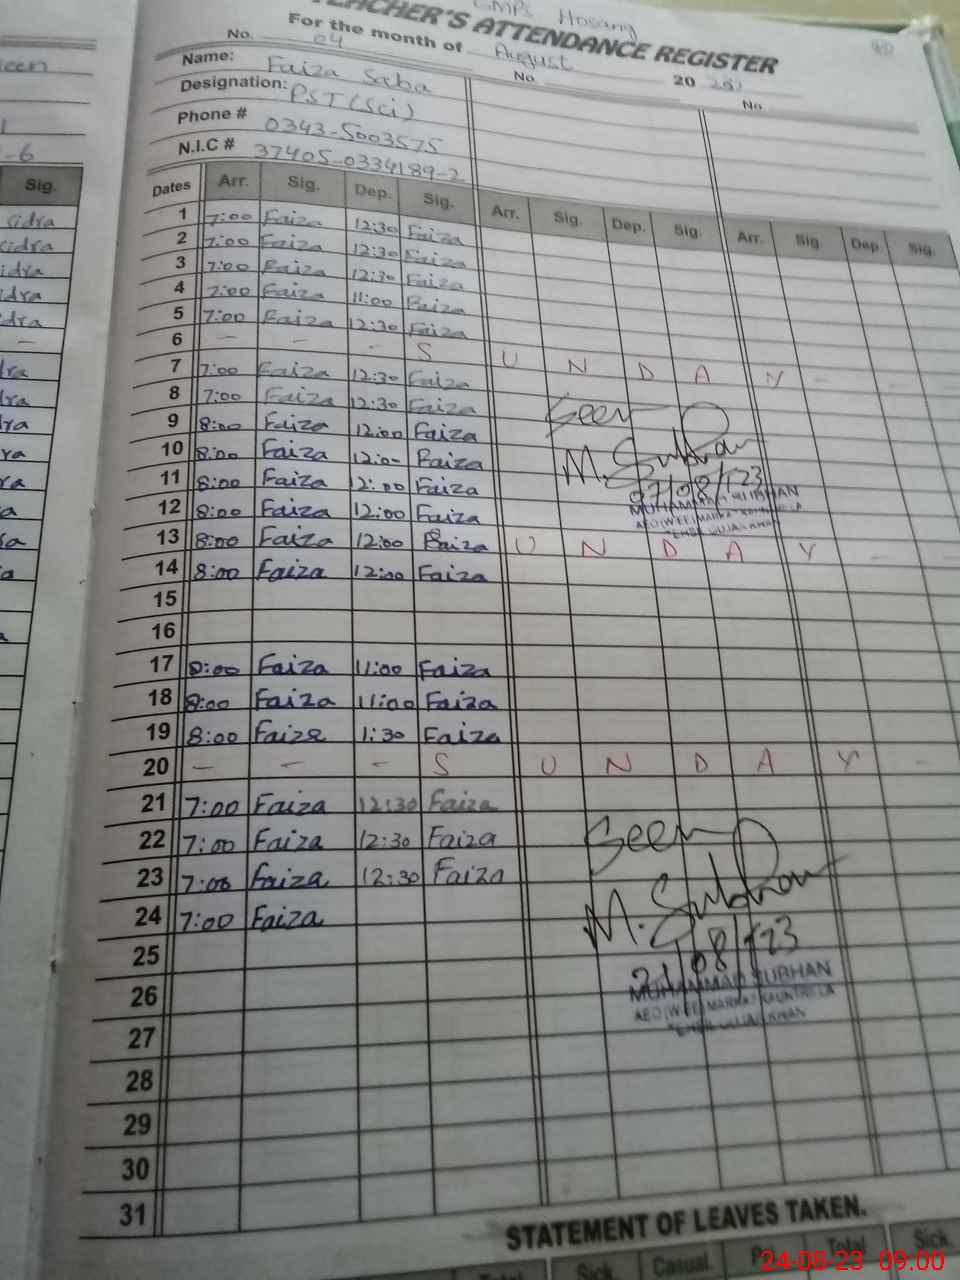 GMPS Hosang
TEACHER'S ATTENDANCE REGISTER
For the month of August 20
No. 04 No. No.
Name: Faiza Saba
Designation: PST (Sci)
Phone # 0343-5003575
N.I.C # 37405-0334189-2
Dates Arr. Sig. Dep. Sig. Arr. Sig. Dep. Sig. Arr. Sig. Dep Sig.
1 7:00 Faiza 12:30 Faiza
2 7:00 Faiza 12:30 Faiza
3 7:00 Faiza 12:30 Faiza
4 7:00 Faiza 11:00 Faiza
5 7:00 Faiza 12:30 Faiza
6 - - - S U N D A Y - - -
7 7:00 Faiza 12:30 Faiza
8 7:00 Faiza 12:30 Faiza
9 8:00 Faiza 12:00 Faiza
10 8:00 Faiza 12:00 Faiza
11 8:00 Faiza 12:00 Faiza
12 8:00 Faiza 12:00 Faiza
13 8:00 Faiza 12:00 Faiza U N D A Y - -
14 8:00 Faiza 12:00 Faiza
15
16
17 8:00 Faiza 11:00 Faiza
18 8:00 Faiza 11:00 Faiza
19 8:00 Faiza 1:30 Faiza
20 - - - S U N D A Y -
21 7:00 Faiza 12:30 Faiza
22 7:00 Faiza 12:30 Faiza
23 7:00 Faiza 12:30 Faiza
24 7:00 Faiza
25
26
27
28
29
30
31
Seen
M. Subhan
07/08/23
MUHAMMAD SUBHAN
Seen
M. Subhan
21/08/23
MUHAMMAD SUBHAN
AEO (W-EE) MARKAZ
GUJAR KHAN
STATEMENT OF LEAVES TAKEN.
Total Sick Casual. Total Sick.
24-08-23 09:00
een
-6
Sig.
sidra
sidra
idra
dra
dra
-
dra
dra
ra
ra
ra
a